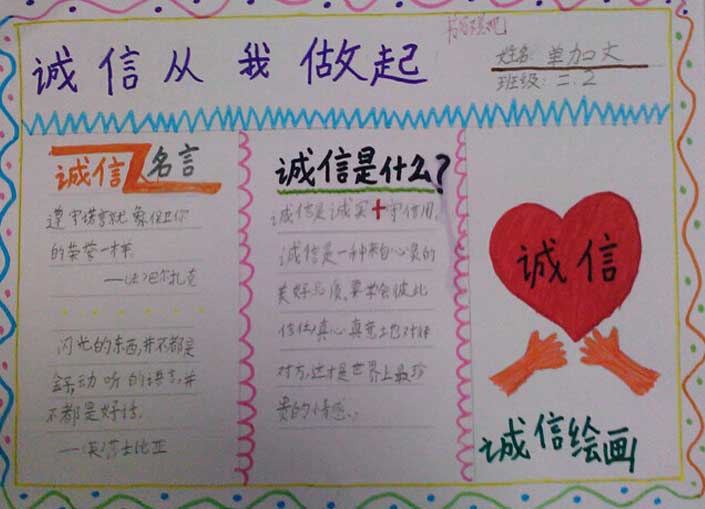 诚信从我做起
姓名:单加文
班级:二.2
诚信名言
遵守诺言就象保卫你
的荣誉一样。
——(法)巴尔扎克
闪光的东西,并不都是
金子,动听的语言,并
不都是好话。
——(英)莎士比亚
诚信是什么?
诚信是诚实+守信用。
诚信是一种来自心灵的
美好品质。要学会彼此
信任,真心真意地对待
对方,这才是世界上最珍
贵的情感。
诚信
诚信绘画